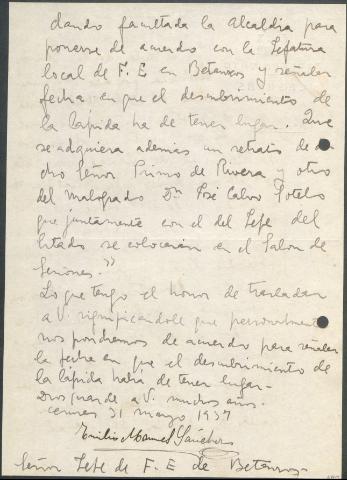 dando facultada la Alcaldia para
ponerse de acuerdo con la Jefatura
local de F. E en Betanzos y señalar
fecha en que el descubrimiento de
la lápida ha de tener lugar. Que
se adquiera además un retrato de di
cho Señor Primo de Rivera y otro
del malogrado Dn José Calvo Sotelo
que juntamente con el del Jefe del
Estado se colocarán en el Salon de
Sesiones."
Lo que tengo el honor de trasladar
a V. significandole que personalmente
nos pondremos de acuerdo para señalar
la fecha en que el descubrimiento de
la lápida habrá de tener lugar-
Dios guarde a V. muchos años.
31 marzo 1937
Emilio Manuel Sánchez
Señor Jefe de F. E de Betanzos-